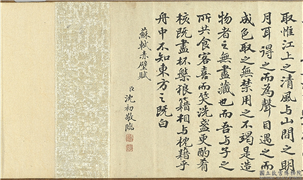 取惟江上之清風與山間之明
月耳得之而為聲目遇之而
成色取之無禁用之不竭是造
物者之無盡藏也而吾與子之
所共食客喜而笑洗盞更酌肴
核既盡杯槃狼藉相與枕藉乎
舟中不知東方之既白
蘇軾赤壁賦
臣沈初敬臨